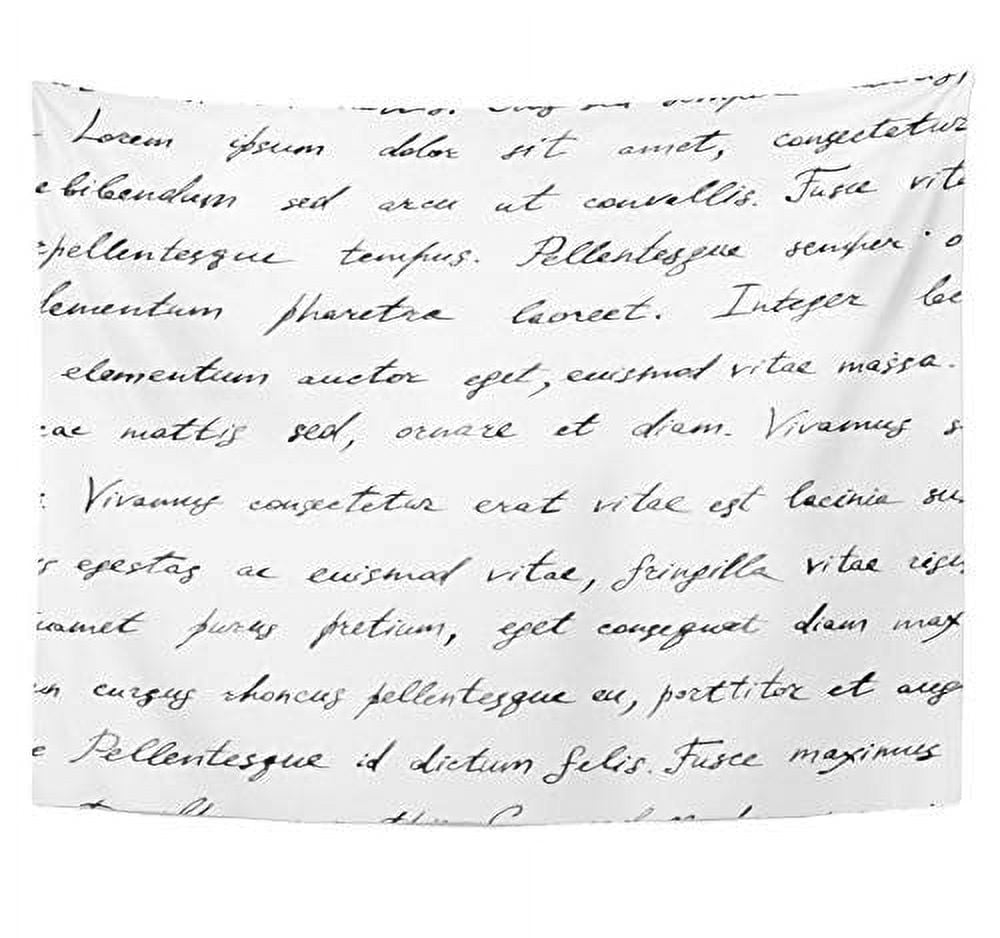 Lorem ipsum dolor sit amet, consectetur
e bibendum sed arcu ut convallis. Fusce vita
pellentesque tempus. Pellentesque semper o
lementum pharetra laoreet. Integer lac
elementum auctor eget, euismod vitae massa.
ac mattis sed, ornare et diam. Vivamus s
Vivamus consectetur erat vitae est lacinia su
s egestas ac euismod vitae, fringilla vitae risus
amet purus pretium, eget consequat diam max
cursus rhoncus pellentesque eu, porttitor et aug
e Pellentesque id dictum felis. Fusce maximus